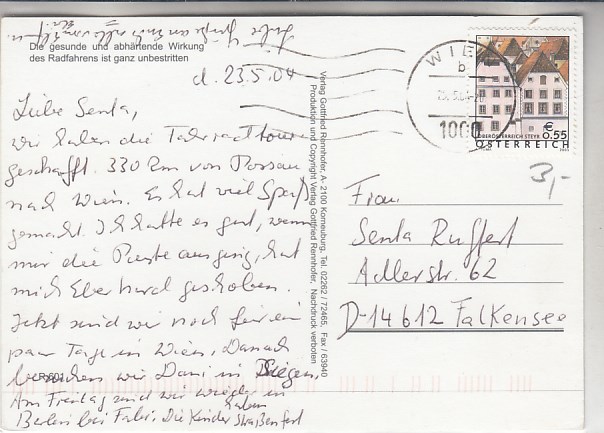 Die gesunde und abhärtende Wirkung
des Radfahrens ist ganz unbestritten
d. 23.5.04
Liebe Senta,
wir haben die Fahrradtour
geschafft. 330 km von Passau
nach Wien. Es hat viel Spaß
gemacht. Ich hatte es gut, wenn
mir die Puste ausging, hat
mich Eberhard geschoben.
Jetzt sind wir noch für ein
paar Tage in Wien. Danach
besuchen wir Dani in Siegen.
Am Freitag sind wir wieder in
Berlin bei Fabi. Die Kinder haben Straßenfest
Liebe Grüße an Euch alle
Verlag Gottfried Rennhofer, A- 2100 Korneuburg, Tel. 02262 / 72465, Fax / 63940
Produktion und Copyright Verlag Gottfried Rennhofer, Nachdruck verboten
WIEN
b
1000
€ 0.55
OBERÖSTERREICH STEYR
ÖSTERREICH
3,-
Frau
Senta Ruffert
Adlerstr. 62
D-14612 Falkensee